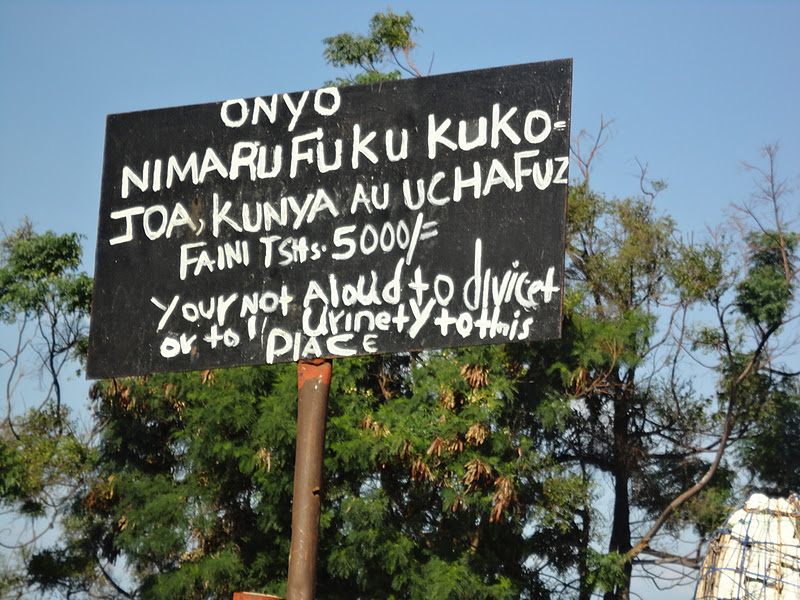 ONYO
NIMARUFUKU KUKO=
JOA, KUNYA AU UCHAFUZ
FAINI TSHs. 5000/=
Your Not Aloud to divicet
or to " urinety to this
PlACE